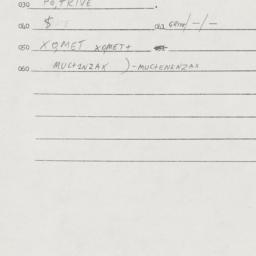 030 PO,TRIVE .
040 $ 041 GRM/-/-
050 XOMET XOMET+
060 MUCHINZAX )-MUCHENENZAX